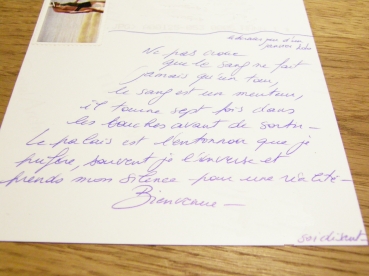 Ne pas croire
que le sang ne fait
jamais qu'un tour,
le sang est un menteur,
il tourne sept fois dans
les bouches avant de sortir -
Le palais est l'entonnoir que je
préfère, souvent je l'inverse et
prends mon silence pour une réalité -
Bienvenue -
soi disant -